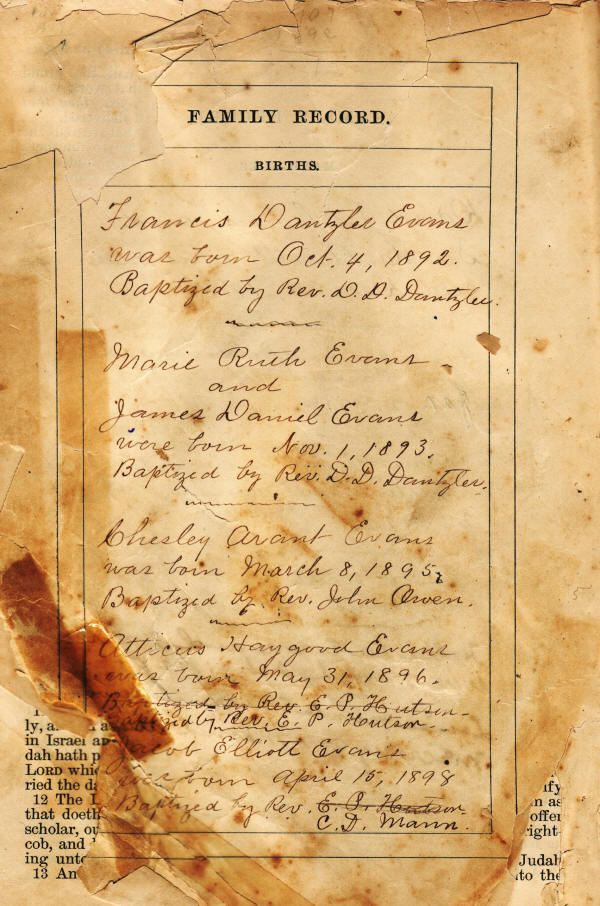 FAMILY RECORD.
BIRTHS.
Francis Dantzler Evans
was born Oct. 4, 1892.
Baptized by Rev. D. D. Dantzler.
Marie Ruth Evans
and
James Daniel Evans
were born Nov. 1, 1893.
Baptized by Rev. D. D. Dantzler.
Chesley Arant Evans
was born March 8, 1895,
Baptized by Rev. John Owen.
Atticus Haygood Evans
was born May 31, 1896.
Baptized by Rev. E. P. Hutson.
Baptized by Rev. E. P. Hutson.
Jacob Elliott Evans
was born April 15, 1898
Baptized by Rev. E. P. Hutson.
C. D. Mann.
ly, a
in Israel an
dah hath p
LORD whic
ried the da
12 The L
that doeth
scholar, ou
cob, and
ing unto
13 An
ify
n as
offer
right-
Judah
to the